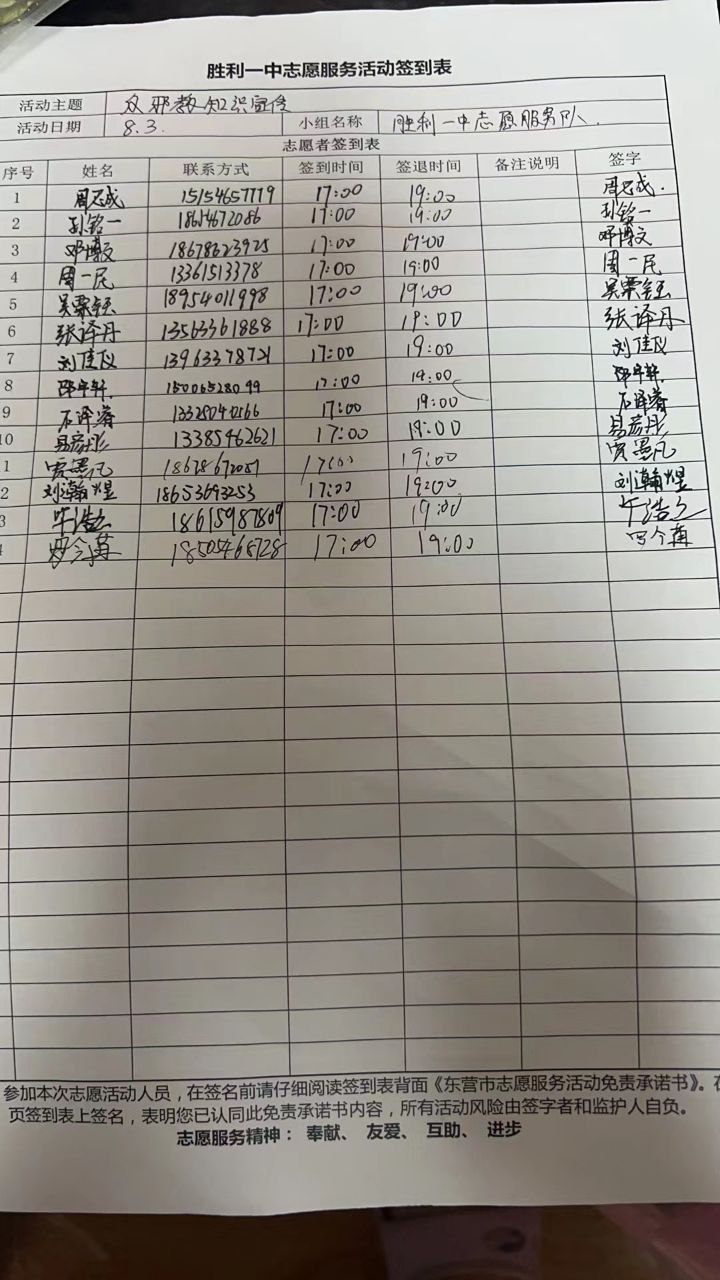 胜利一中志愿服务活动签到表
活动主题 反邪教知识宣传
活动日期 8.3. 小组名称 胜利一中志愿服务队.
志愿者签到表
序号 姓名 联系方式 签到时间 签退时间 备注说明 签字
1 15154657779 17:00 19:00
2 孙铭一 18614672086 17:00 19:00 孙铭一
3 邓博文 18678623925 17:00 19:00 邓博文
4 周一民 13361513378 17:00 19:00 周一民
5 18954011998 17:00 19:00
6 张译丹 13563361888 17:00 19:00 张译丹
7 刘佳仪 13963378721 17:00 19:00 刘佳仪
8 15006528099 17:00 19:00
9 石译睿 17:00 19:00 石译睿
10 易彦彤 13385462621 17:00 19:00 易彦彤
1 贾墨凡 17:00 19:00 贾墨凡
2 刘瀚煜 18653693253 17:00 19:00 刘瀚煜
3 毕浩之 18615987809 17:00 19:00 毕浩之
4 17:00 19:00
参加本次志愿活动人员，在签名前请仔细阅读签到表背面《东营市志愿服务活动免责承诺书》。在
页签到表上签名，表明您已认同此免责承诺书内容，所有活动风险由签字者和监护人自负。
志愿服务精神： 奉献、 友爱、 互助、 进步